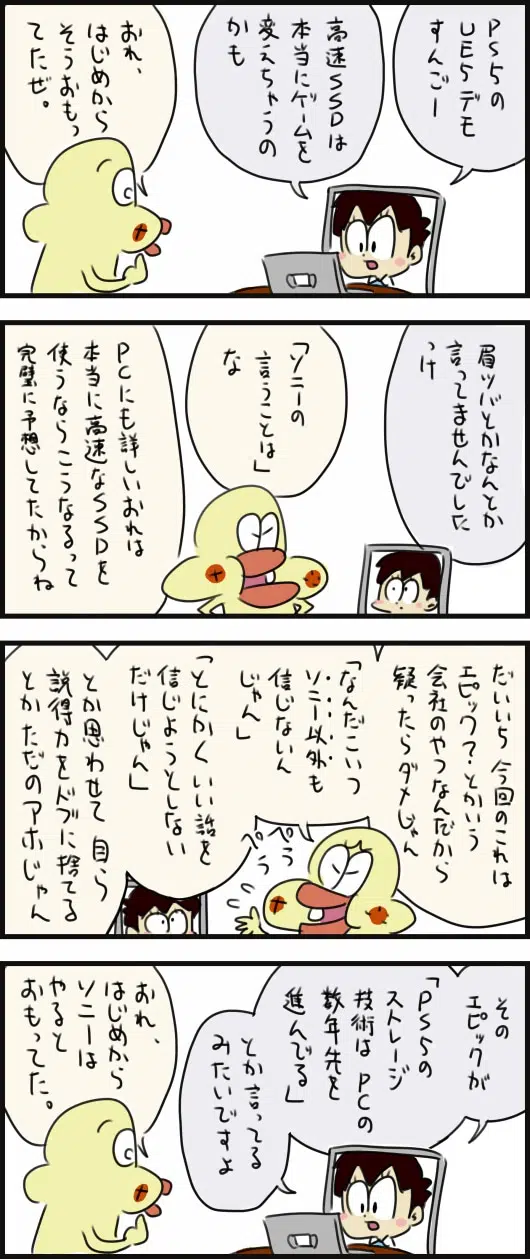 PS5の
UE5デモ
すんごー
高速SSDは
本当にゲームを
変えちゃうの
かも
おれ、
はじめから
そうおもっ
てたぜ。
眉ツバとかなんとか
言ってませんでした
っけ
「ソニーの
言うことは」
な
PCにも詳しいおれは
本当に高速なSSDを
使うならこうなるって
完璧に予想してたからね
だいいち 今回のこれは
エピック?とかいう
会社のやつなんだから
疑ったらダメじゃん
「なんだこいつ
ソニー以外も
信じないん
じゃん」
「とにかくいい話を
信じようとしない
だけじゃん」
とか思わせて 自ら
説得力をドブに捨てる
とか ただのアホじゃん
ぺら
ぺら
その
エピックが
「PS5の
ストレージ
技術は PCの
数年先を
進んでる」
とか言ってる
みたいですよ
おれ、
はじめから
ソニーは
やると
おもってた。